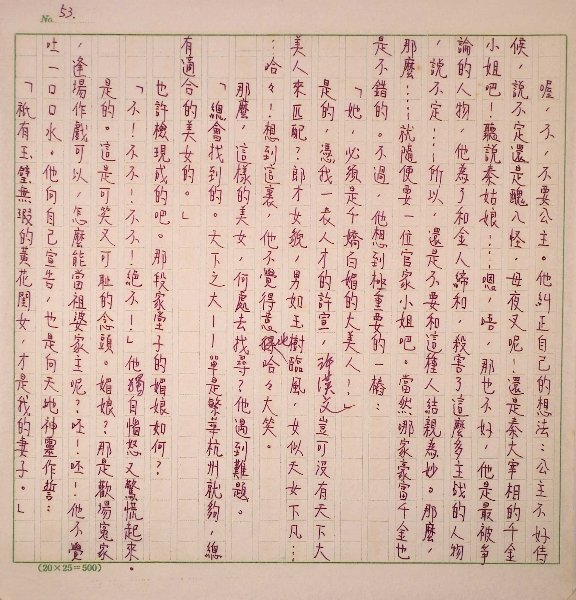 No. 53.
喔 不，不要公主。他糾正自己的想法：公主不好侍
候，說不定還是醜八怪 母夜叉呢！還是秦太宰相的千金
小姐吧！聽說秦姑娘……嗯 唔，那也不好，他是最被爭
論的人物，他為了和金人締和，殺害了這麼多主战的人物
，說不定……所以，還是不要和這種人結親為妙。那麼，
那麼……就隨便要一位官家小姐吧。當然哪家豪富千金也
是不錯的。不過，他想到極重要的一樁：
「她，必須是千嬌百媚的大美人！」
是的，憑我一表人才的許宣，許漢文豈可沒有天下大
美人來匹配？郎才女貌，男如玉樹臨風，女似天女下凡……
…哈々！想到這裏，他不覺得意地哈々大笑。
那麼，這樣的美女，何處去找尋？他遇到難題。
「總會找到的。天下之大——單是繁華杭州就夠，總
有適合的美女的。」
也許檢現成的吧。那段家堂子的媚娘如何？
「不！不不！不不！絕不！」他獨自惱怒又驚慌起來。
是的。這是可笑又可耻的念頭。媚娘？那是歡場冤家
，逢場作戲可以，怎麼能當祖婆家主呢？呸！呸！他不覺
吐一口口水。他向自己宣告，也是向天地神靈作誓：
「祇有玉璧無瑕的黃花閨女，才是我的妻子。」
(20×25=500)